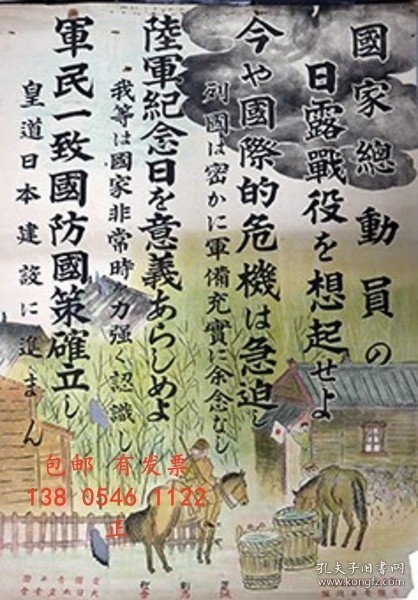 國家總動員の
日露戰役を想起せよ
今や國際的危機は急迫し
列國は密かに軍備充實に余念なし
陸軍紀念日を意義あらしめよ
我等は國家非常時を力強く認識し
軍民一致國防國策確立し
皇道日本建設に進まん
包邮 有发票
138 0546 1122
正
孔夫子旧书网
www.kongfz.com